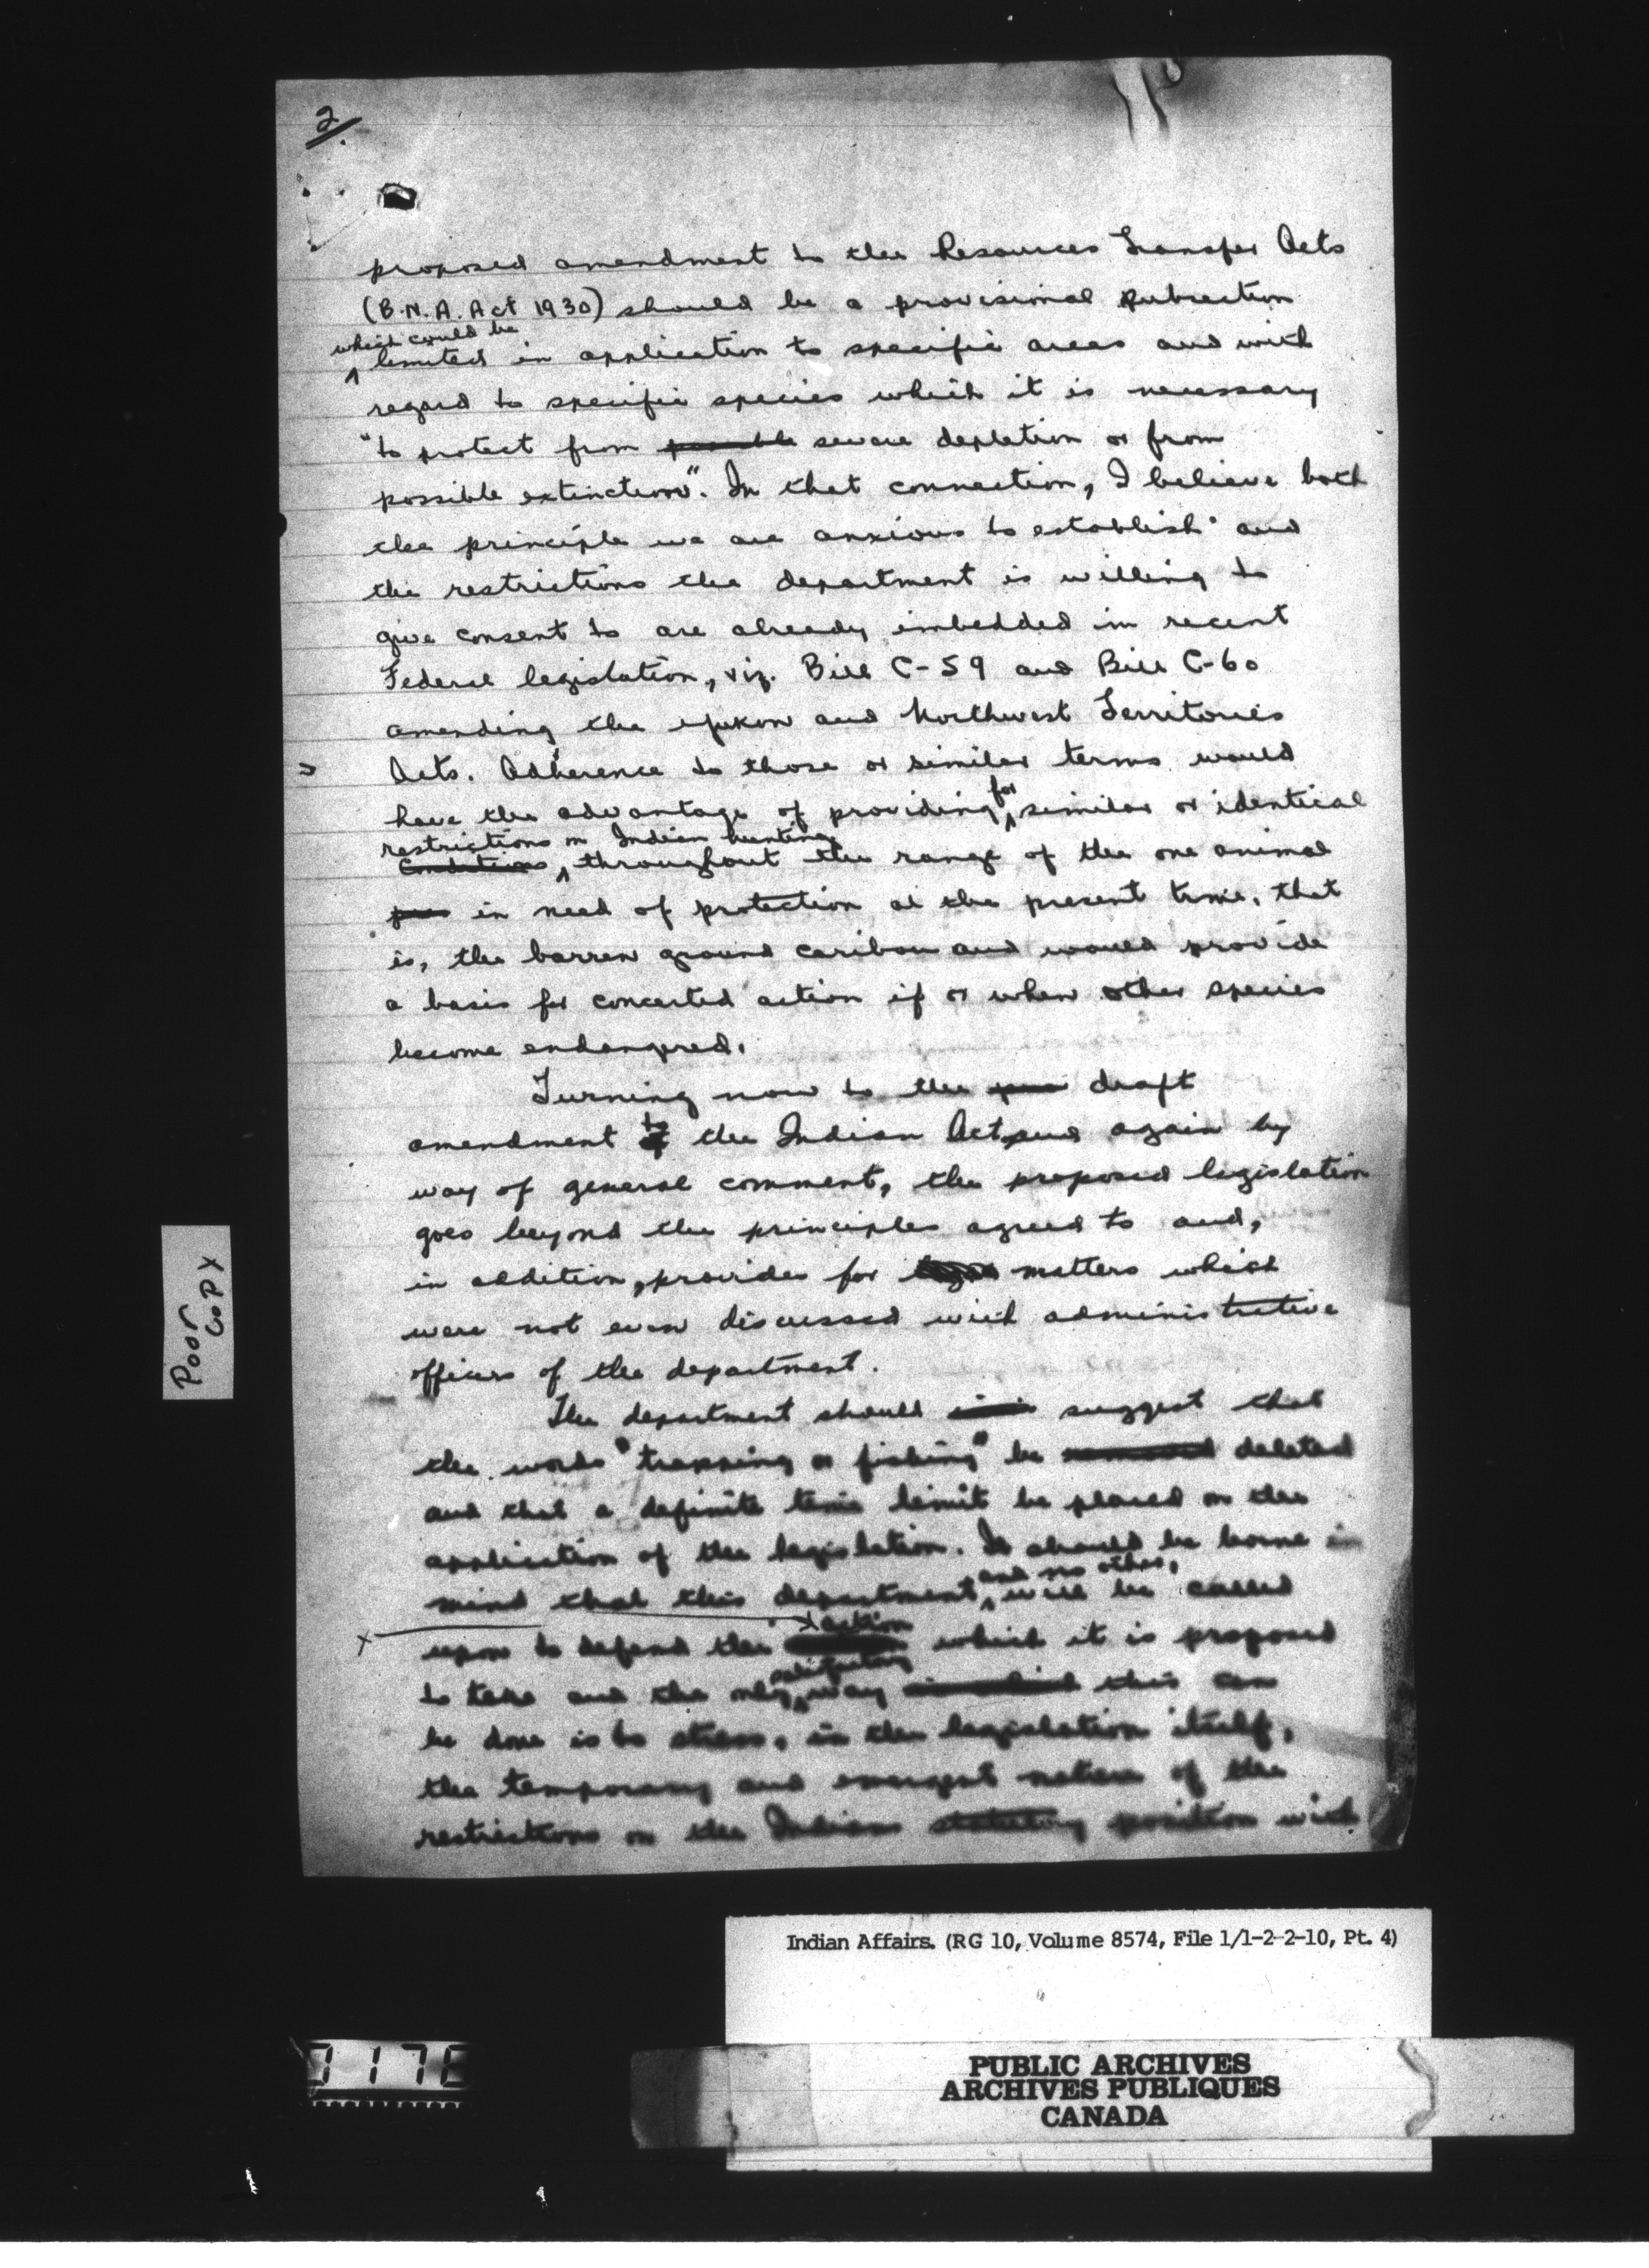 2
proposed amendment to the Resources Transfer Acts
(B.N.A. Act 1930) should be a provisional subsection
which could be
limited in application to specific areas and with
regard to specific species which it is necessary
"to protect from possible severe depletion or from
possible extinction". In that connection, I believe both
the principle we are anxious to establish and
the restrictions the department is willing to
give consent to are already imbedded in recent
Federal legislation, viz. Bill C-59 and Bill C-60
amending the Yukon and Northwest Territories
Acts. Adherence to those or similar terms would
for
have the advantage of providing similar or identical
restrictions on Indian hunting
conditions throughout the range of the one animal
in need of protection at the present time, that
is, the barren ground caribou and would provide
a basis for concerted action if or when other species
become endangered.
Turning now to the draft
to
amendment of the Indian Act and again by
way of general comment, the proposed legislation
goes beyond the principles agreed to and,
in addition, provides for matters which
were not even discussed with administrative
officers of the department.
The department should suggest that
the words "trapping or fishing" be deleted
and that a definite time limit be placed on the
application of the legislation. It should be borne in
and no other,
mind that this department will be called
x action
upon to defend the which it is proposed
satisfactory
to take and the only way in which this can
be done is to stress, in the legislation itself,
the temporary and emergent nature of the
restrictions on the Indians statutory position with
Poor
Copy
Indian Affairs. (RG 10, Volume 8574, File 1/1-2-2-10, Pt. 4)
PUBLIC ARCHIVES
ARCHIVES PUBLIQUES
CANADA